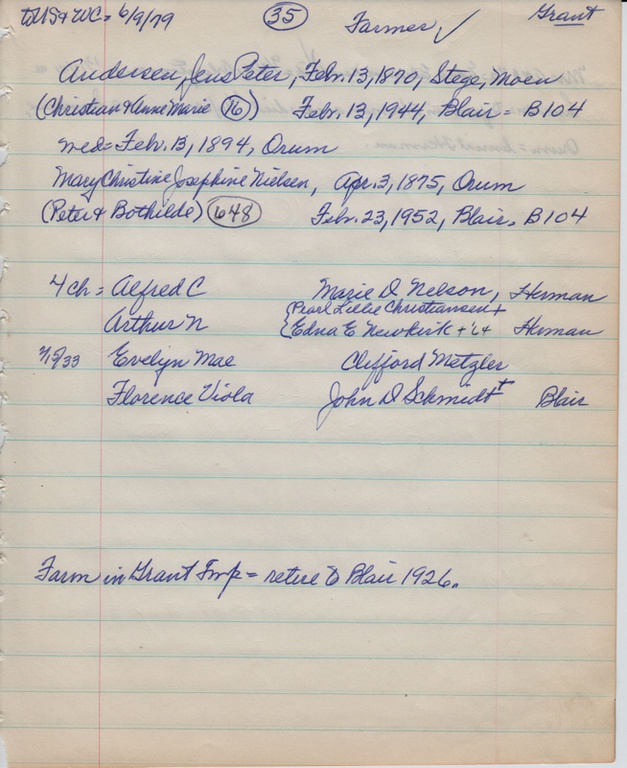 to US & WC = 6/9/79 35 Farmer ✓ Grant
Andersen, Jens Peter, Feb. 13, 1870, Stege, Moen
(Christian & Anne Marie 16) Feb. 12, 1944, Blair = B104
med = Feb. 13, 1894, Orum
Mary Christine Josephine Nielsen, Apr. 3, 1875, Orum
(Peter & Bothilde) 648 Feb. 23, 1952, Blair = B104
4 ch = Alfred C Marie D Nelson, Herman
(Pearl Lillie Christiansen +
Arthur N {Edna E Newkirk + '64 Herman
33 Evelyn Mae Clifford Metzler
Florence Viola John D Schmidt + Blair
Farm in Grant Twp = retire to Blair 1926.